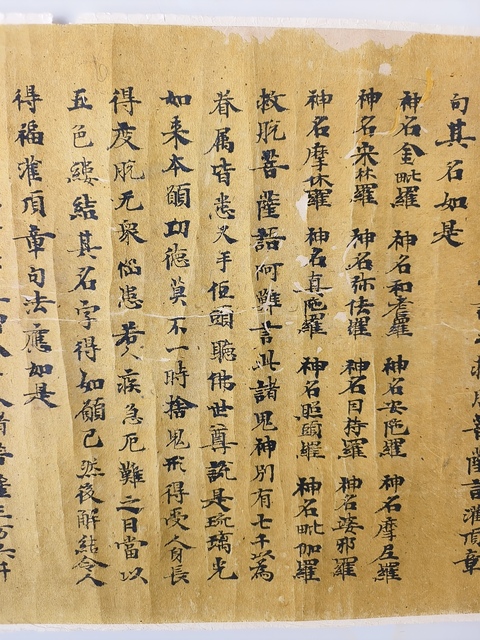 救脱菩薩言灌頂章
句其名如是
神名金毗羅 神名和耆羅 神名安陁羅 神名摩尼羅
神名宋林羅 神名弥佉羅 神名因持羅 神名婆耶羅
神名摩休羅 神名真陁羅 神名照頭羅 神名毗伽羅
救脱菩薩語阿難言此諸鬼神別有七千以為
眷属皆悉叉手低頭聽佛世尊說是琉璃光
如来本願功德莫不一時捨鬼形得受人身長
得度脱无衆惱患若人疾急厄難之日當以
五色縷結其名字得如願已然後解結令人
得福灌頂章句法應如是
菩薩三万六千